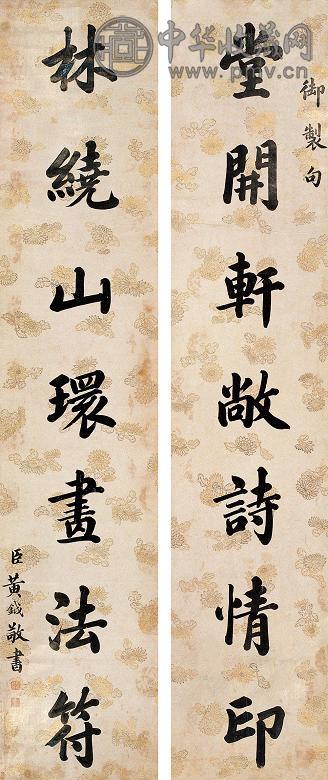 御製句
堂開軒敞詩情印
林繞山環畫法符
臣黃鉞敬書
中华收藏网